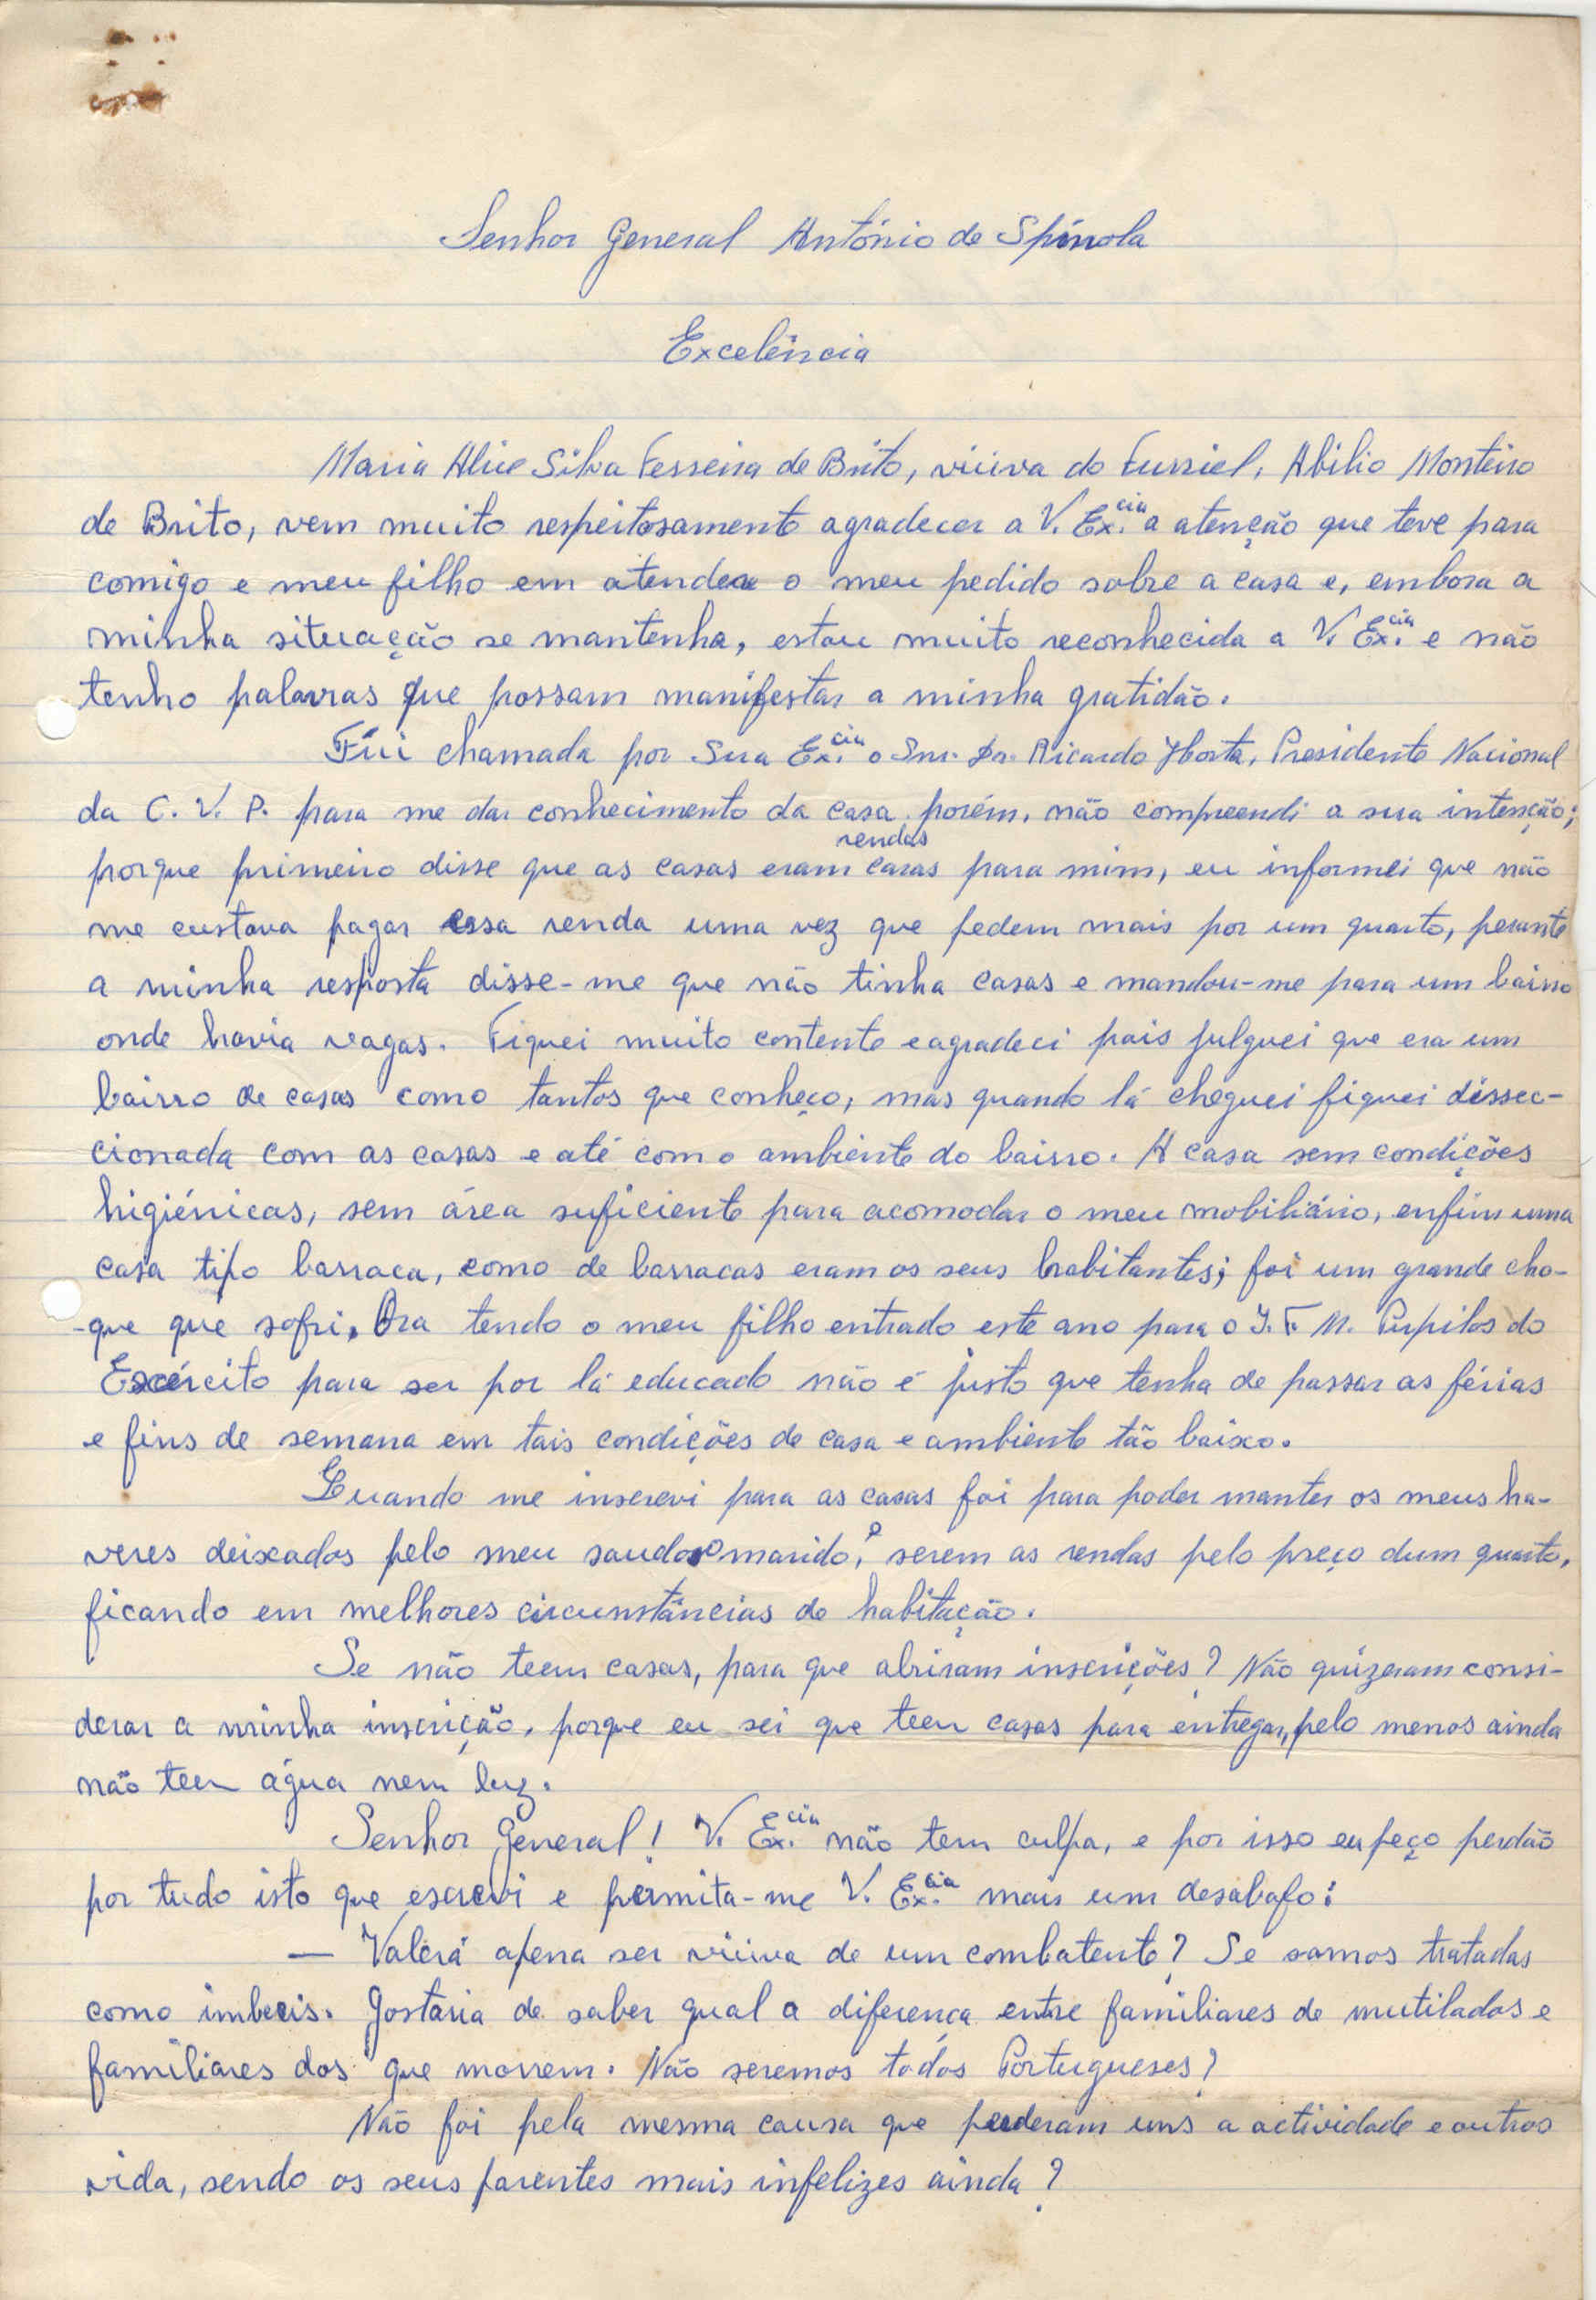 Senhor General António de Spínola
Excelência
Maria Alice Silva Ferreira de Brito, viúva do Furriel, Abilio Monteiro
de Brito, vem muito respeitosamente agradecer a V. Ex.cia a atenção que teve para
comigo e meu filho em atender o meu pedido sobre a casa e, embora a
minha situação se mantenha, estou muito reconhecida a V. Ex.cia e não
tenho palavras que possam manifestar a minha gratidão.
Fui chamada por Sua Ex.cia o Snr. Dr. Ricardo Horta, Presidente Nacional
da C. V. P. para me dar conhecimento da casa porém, não compreendi a sua intenção;
rendas
porque primeiro disse que as casas eram caras para mim, eu informei que não
me custava pagar essa renda uma vez que pedem mais por um quarto, perante
a minha resposta disse-me que não tinha casas e mandou-me para um bairro
onde havia vagas. Fiquei muito contente e agradeci pois julguei que era um
bairro de casas como tantos que conheço, mas quando lá cheguei fiquei dissec-
cionada com as casas e até com o ambiente do bairro. A casa sem condições
higiénicas, sem área suficiente para acomodar o meu mobiliário, enfim uma
casa tipo barraca, como de barracas eram os seus habitantes; foi um grande cho-
-que que sofri. Ora tendo o meu filho entrado este ano para o I. F. M. Pupilos do
Exército para ser por lá educado não é justo que tenha de passar as férias
e fins de semana em tais condições de casa e ambiente tão baixo.
Quando me inscrevi para as casas foi para poder manter os meus ha-
veres deixados pelo meu saudoso marido, e serem as rendas pelo preço dum quarto,
ficando em melhores circunstâncias de habitação.
Se não teem casas, para que abriram inscrições? Não quizeram consi-
derar a minha inscrição, porque eu sei que teem casas para entregar, pelo menos ainda
não teem água nem luz.
Senhor General! V. Ex.cia não tem culpa, e por isso eu peço perdão
por tudo isto que escrevi e permita-me V. Ex.cia mais um desabafo:
— Valerá apena ser viúva de um combatente? Se somos tratadas
como imbecis. Gostaria de saber qual a diferença entre familiares de mutilados e
familiares dos que morrem. Não seremos todos Portugueses?
Não foi pela mesma causa que perderam uns a actividade e outros
vida, sendo os seus parentes mais infelizes ainda?